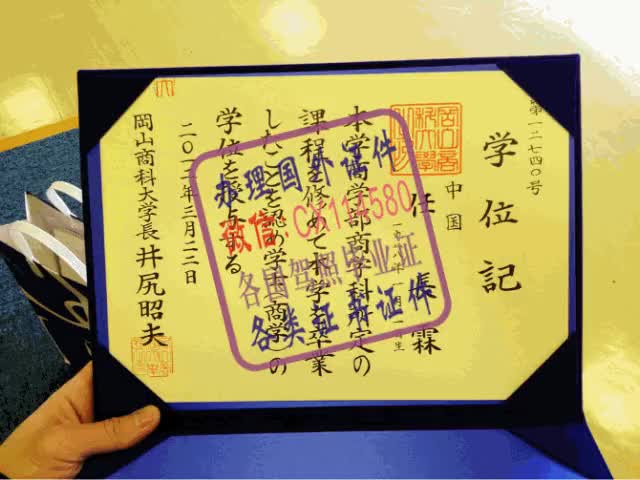 第一二七四〇号
学位記
中国
任 霖
本学商学部商学科所定の
課程を修めて本学を卒業
したことを認め学士(商学)の
学位を授与する
二〇一一年三月二二日
岡山商科大学長 井尻昭夫
办理国外 件
薇信
各国驾照毕业证
各类证 证件